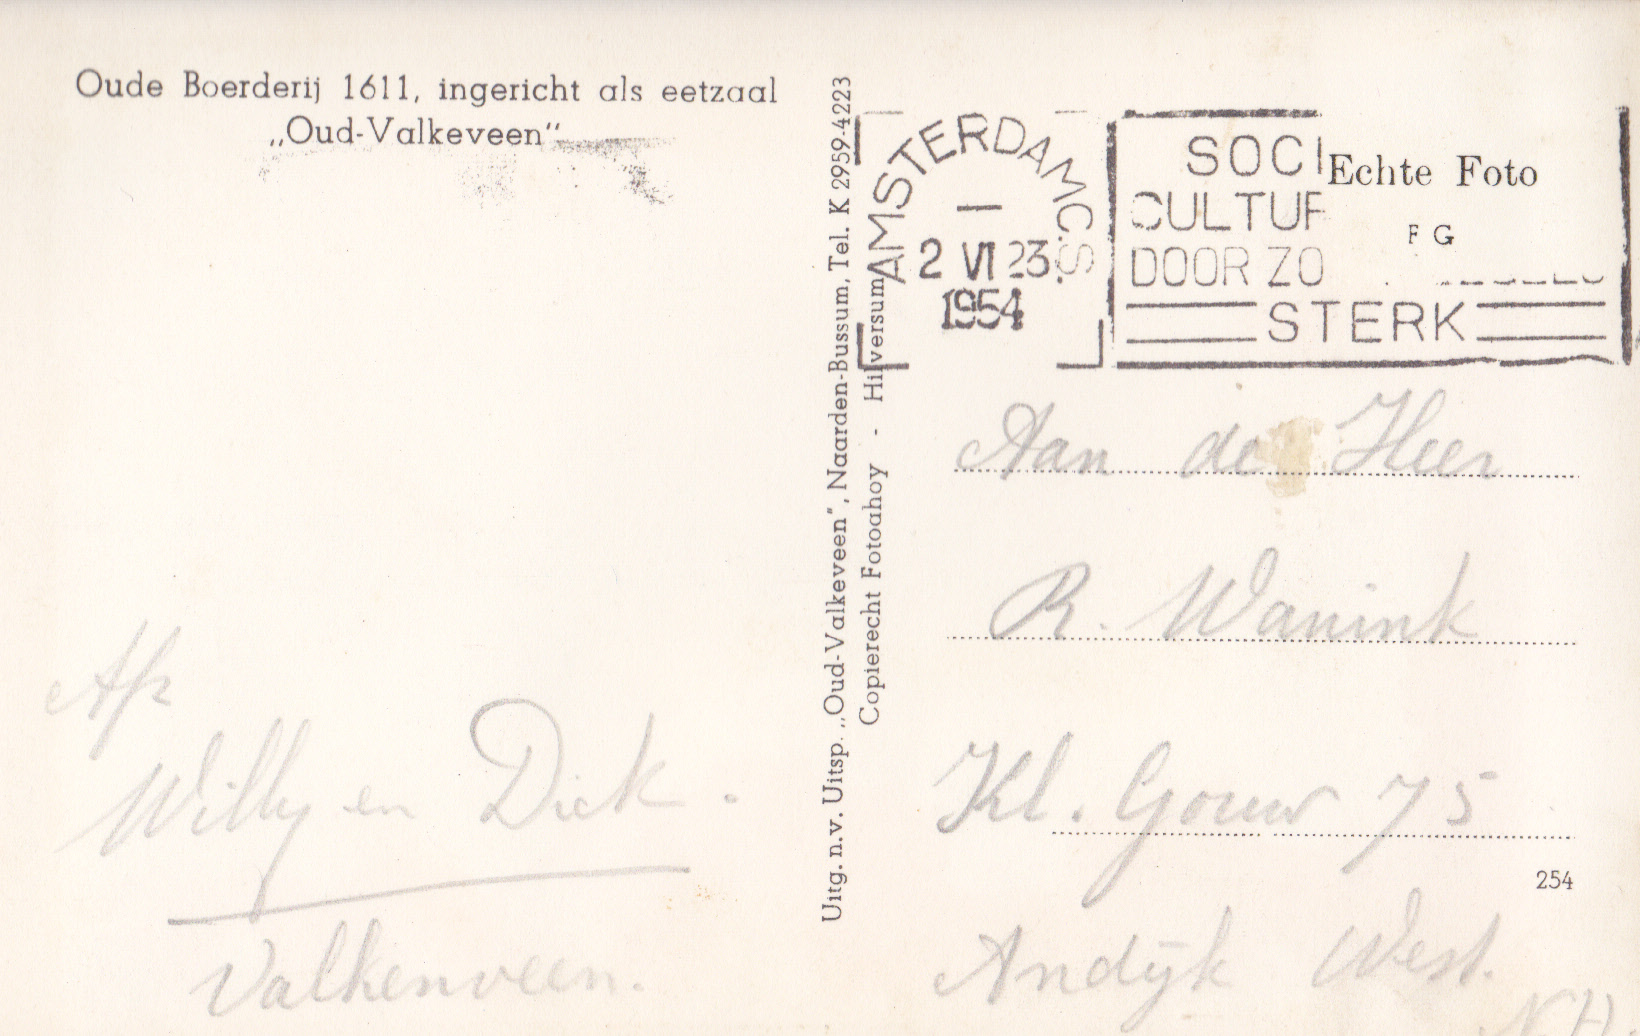 Oude Boerderij 1611, ingericht als eetzaal
„Oud-Valkeveen"
Afz
Willy en Dick.
Valkenveen.
Uitg. n.v. Uitsp. „Oud-Valkeveen", Naarden-Bussum, Tel. K 2959-4223
Copierecht Fotoahoy - Hilversum
AMSTERDAM C.S.
2 VI 23
1954
SOCI
CULTUR
DOOR ZO
STERK
Echte Foto
F G
Aan de Heer
R. Wanink
Kl. Gouw 75
254
Andijk West.
N.H.